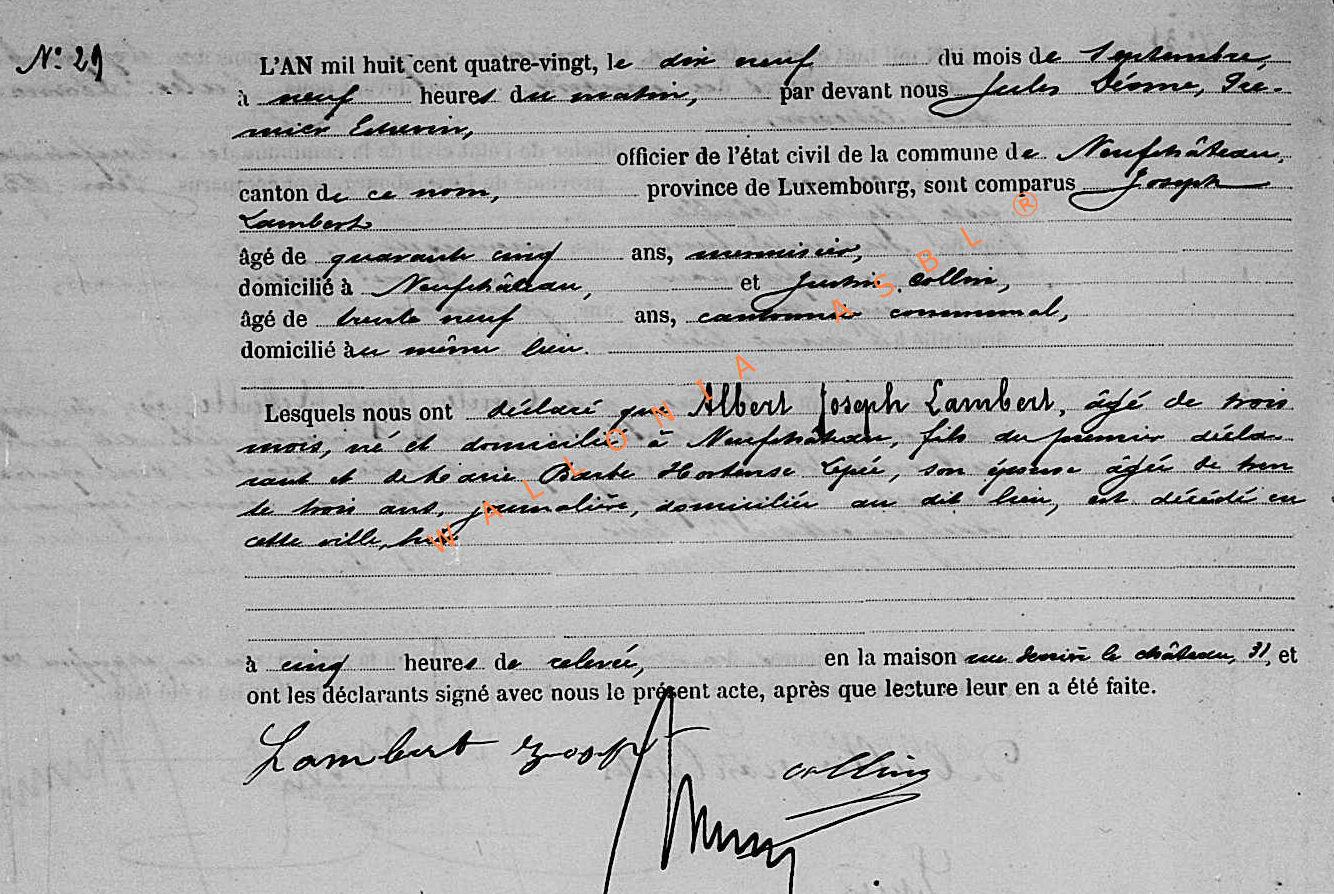 N° 29
L'AN mil huit cent quatre-vingt, le dix neuf du mois de septembre,
à neuf heures du matin, par devant nous Jules
officier de l'état civil de la commune de Neufchâteau,
canton de ce nom, province de Luxembourg, sont comparus Joseph
Lambert
âgé de quarante cinq ans, menuisier,
domicilié à Neufchâteau, et Justin Collin,
âgé de trente neuf ans, cantonnier communal,
domicilié au même lieu.
Lesquels nous ont déclaré que Albert Joseph Lambert, âgé de trois
mois, né et domicilié à Neufchâteau, fils du premier décla-
rant et de Marie Barbe Hortense son épouse âgée de tren
te trois ans, journalière, domiciliée au dit lieu, est décédé en
cette ville, hier
à cinq heures de relevée, en la maison rue derrière le château, 31, et
ont les déclarants signé avec nous le présent acte, après que lecture leur en a été faite.
Lambert Joseph
Collin
WALLONIA ASBL ®